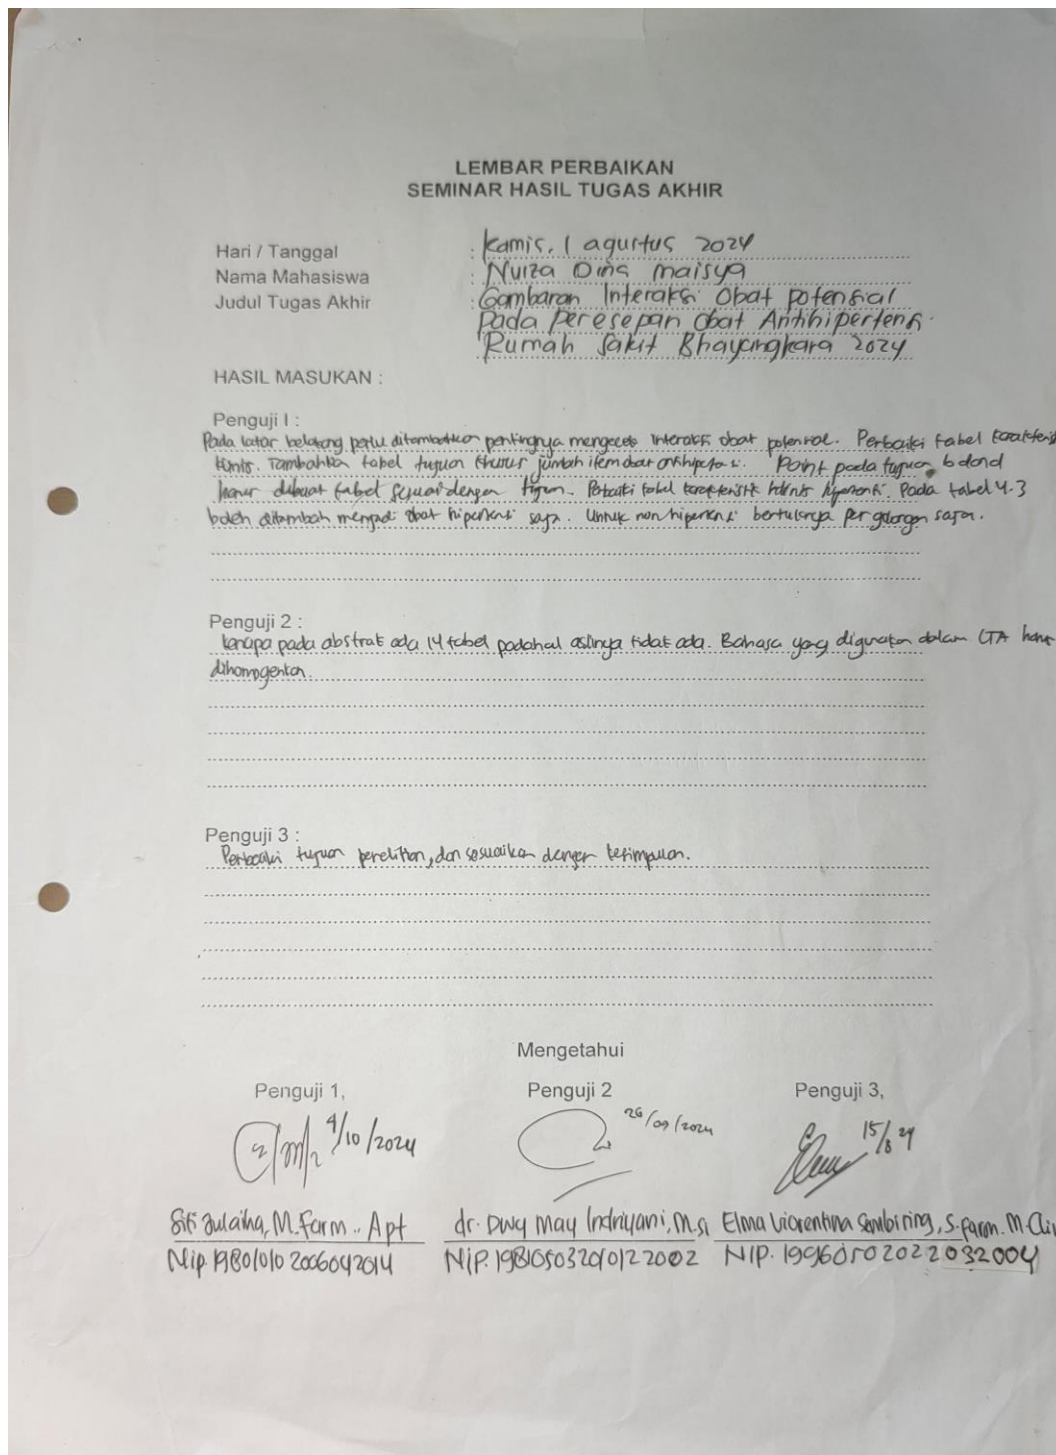 LEMBAR PERBAIKAN
SEMINAR HASIL TUGAS AKHIR
Hari / Tanggal : Kamis, 1 agustus 2024
Nama Mahasiswa : Nurza Dina maisya
Judul Tugas Akhir : Gambaran Interaksi Obat potensial
Pada Peresepan obat Antihipertensi
Rumah Sakit Bhayangkara 2024
HASIL MASUKAN :
Penguji I :
Pada latar belakang perlu ditambahkan pentingnya mengecek interaksi obat potensial. Perbaiki tabel karakteris
klinis. Tambahkan tabel tujuan khusus jumlah item obat antihipertensi. Point pada tujuan b dan d
harus dibuat tabel sesuai dengan tujuan. Perbaiki tabel karakteristik klinis hipertensi. Pada tabel 4.3
boleh ditambah menjadi obat hipertensi saja. Untuk non hipertensi bertulisnya per golongan saja.
Penguji 2 :
kenapa pada abstrak ada 14 tabel padahal aslinya tidak ada. Bahasa yang digunakan dalam LTA harus
dihomogenkan.
Penguji 3 :
Perbaiki tujuan penelitian, dan sesuaikan dengan kesimpulan.
Mengetahui
Penguji 1, Penguji 2 Penguji 3,
4/10/2024 26/09/2024 15/8 24
Siti Julaiha, M.Farm., Apt dr. Dwy May Indriyani, M.si Elma Viorentina Sembiring, S.Farm. M.Clin
Nip. 198010102006042014 NIP. 198105032010122002 NIP. 199605022022032004